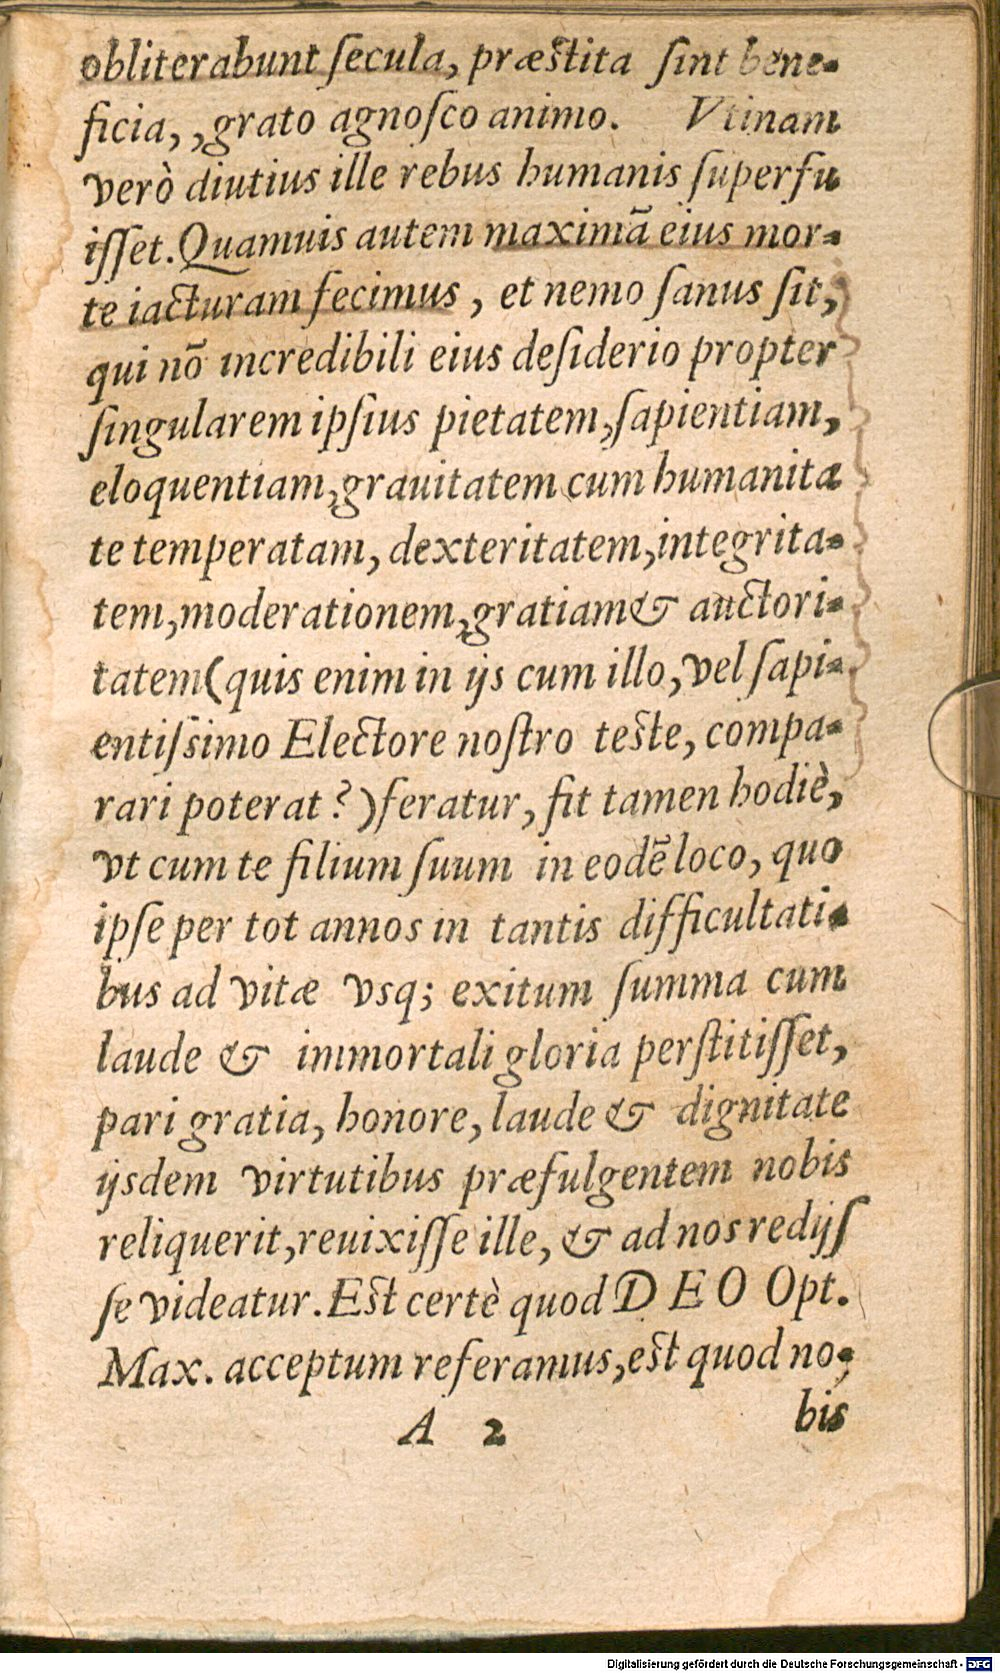 obliterabunt ſecula, præstita ſint bene-
ficia, ,grato agnoſco animo. Vtinam
verò diutius ille rebus humanis ſuperfu
iſſet. Quamuis autem maximā eius mor-
te iacturam fecimus, et nemo ſanus ſit,
qui nō incredibili eius deſiderio propter
ſingularem ipſius pietatem, ſapientiam,
eloquentiam, grauitatem cum humanita
te temperatam, dexteritatem, integrita-
tem, moderationem, gratiam & auctori-
tatem (quis enim in ijs cum illo, vel ſapi-
entiſsimo Electore noſtro teste, compa-
rari poterat?) feratur, fit tamen hodiè,
vt cum te filium ſuum in eodē loco, quo
ipſe per tot annos in tantis difficultati-
bus ad vitæ vsq; exitum ſumma cum
laude & immortali gloria perſtitiſſet,
pari gratia, honore, laude & dignitate
ijsdem virtutibus præfulgentem nobis
reliquerit, reuixiſſe ille, & ad nos redijſ
ſe videatur. Est certè quod DEO Opt.
Max. acceptum referamus, est quod no-
bis
A 2
Digitalisierung gefördert durch die Deutsche Forschungsgemeinschaft - DFG